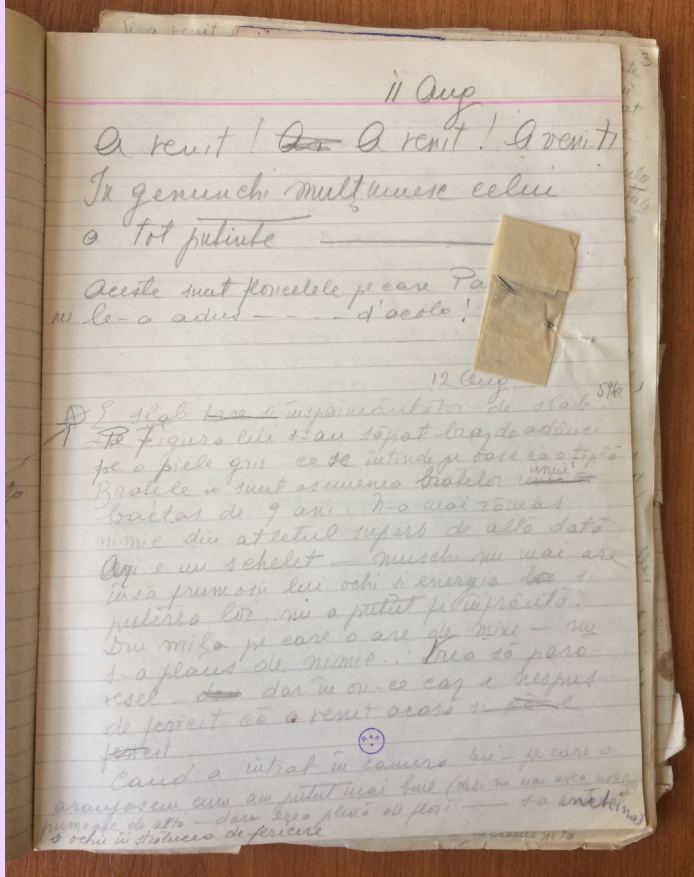 11 Aug
A venit! A venit! A venit!
In genunchi multumesc celui
a tot putinte
Aceste sunt floricelele pe care Pa
mi le-a adus — - - - - d'acolo!
12 Aug
E slab înspaimântător de slab 59 kl
Pe figura lui s-au săpat brazde adânci
pe o piele gris ce se întinde pe oase ca o
Bratele sunt asemenea bratelor unui
baetas de 9 ani. N-a mai rămas
nimic din atletul superb de altă dată
Azi e un schelet — muschi nu mai are
însă frumosii lui ochi si energia si
puterea lor, nu a putut fi înfrântă.
Din mila pe care o are de mine — nu
s-a plans de nimic.. Vrea să pară
vesel — dar în ori-ce caz e nespus
de fericit că a venit acasă si e
fericit.
Cand a intrat în camera lui — pe care o
aranjasem cum am putut mai bine (desi nu mai avea mobilele
frumoase de altă — dară erea plină de flori — s-a
si ochii în strălucea de fericire
B.A.R.